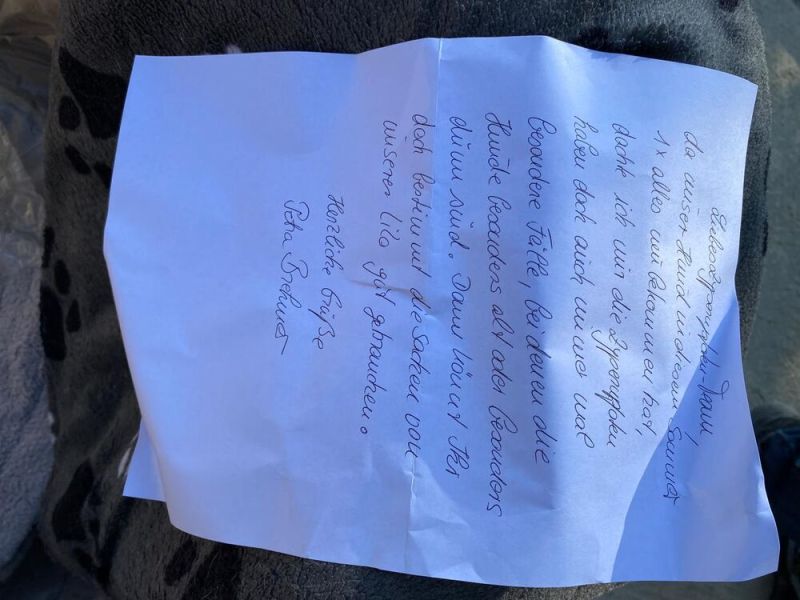 Liebes Zypernpfoten-Team,
da unser Hund in diesem Sommer
1x alles mitbekommen hat,
dachte ich mir die Zypernpfoten
haben doch auch immer mal
besondere Fälle, bei denen die
Hunde besonders alt oder besonders
dünn sind. Dann könnt Ihr
doch bestimmt die Sachen von
unserer Lila gut gebrauchen.
Herzliche Grüße
Petra